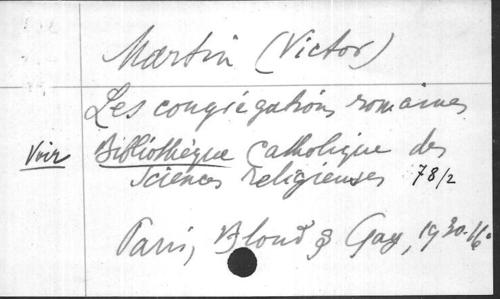 Martin (Victor)
Les congrégations romaines
Voir Bibliothèque Catholique des
Sciences religieuses 78/2
Paris, Bloud & Gay, 1930. 16°